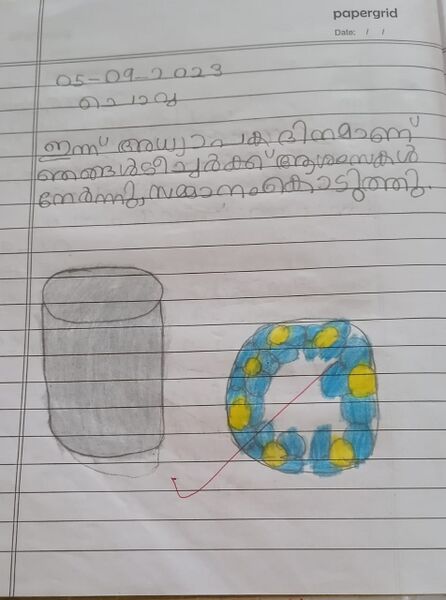 papergrid
Date: / /
05-09-2023
ചൊവ്വ
ഇന്ന് അധ്യാപകദിനമാണ്
ഞങ്ങൾ ടീച്ചർക്ക് ആശംസകൾ
നേർന്നു, സമ്മാനം കൊടുത്തു.